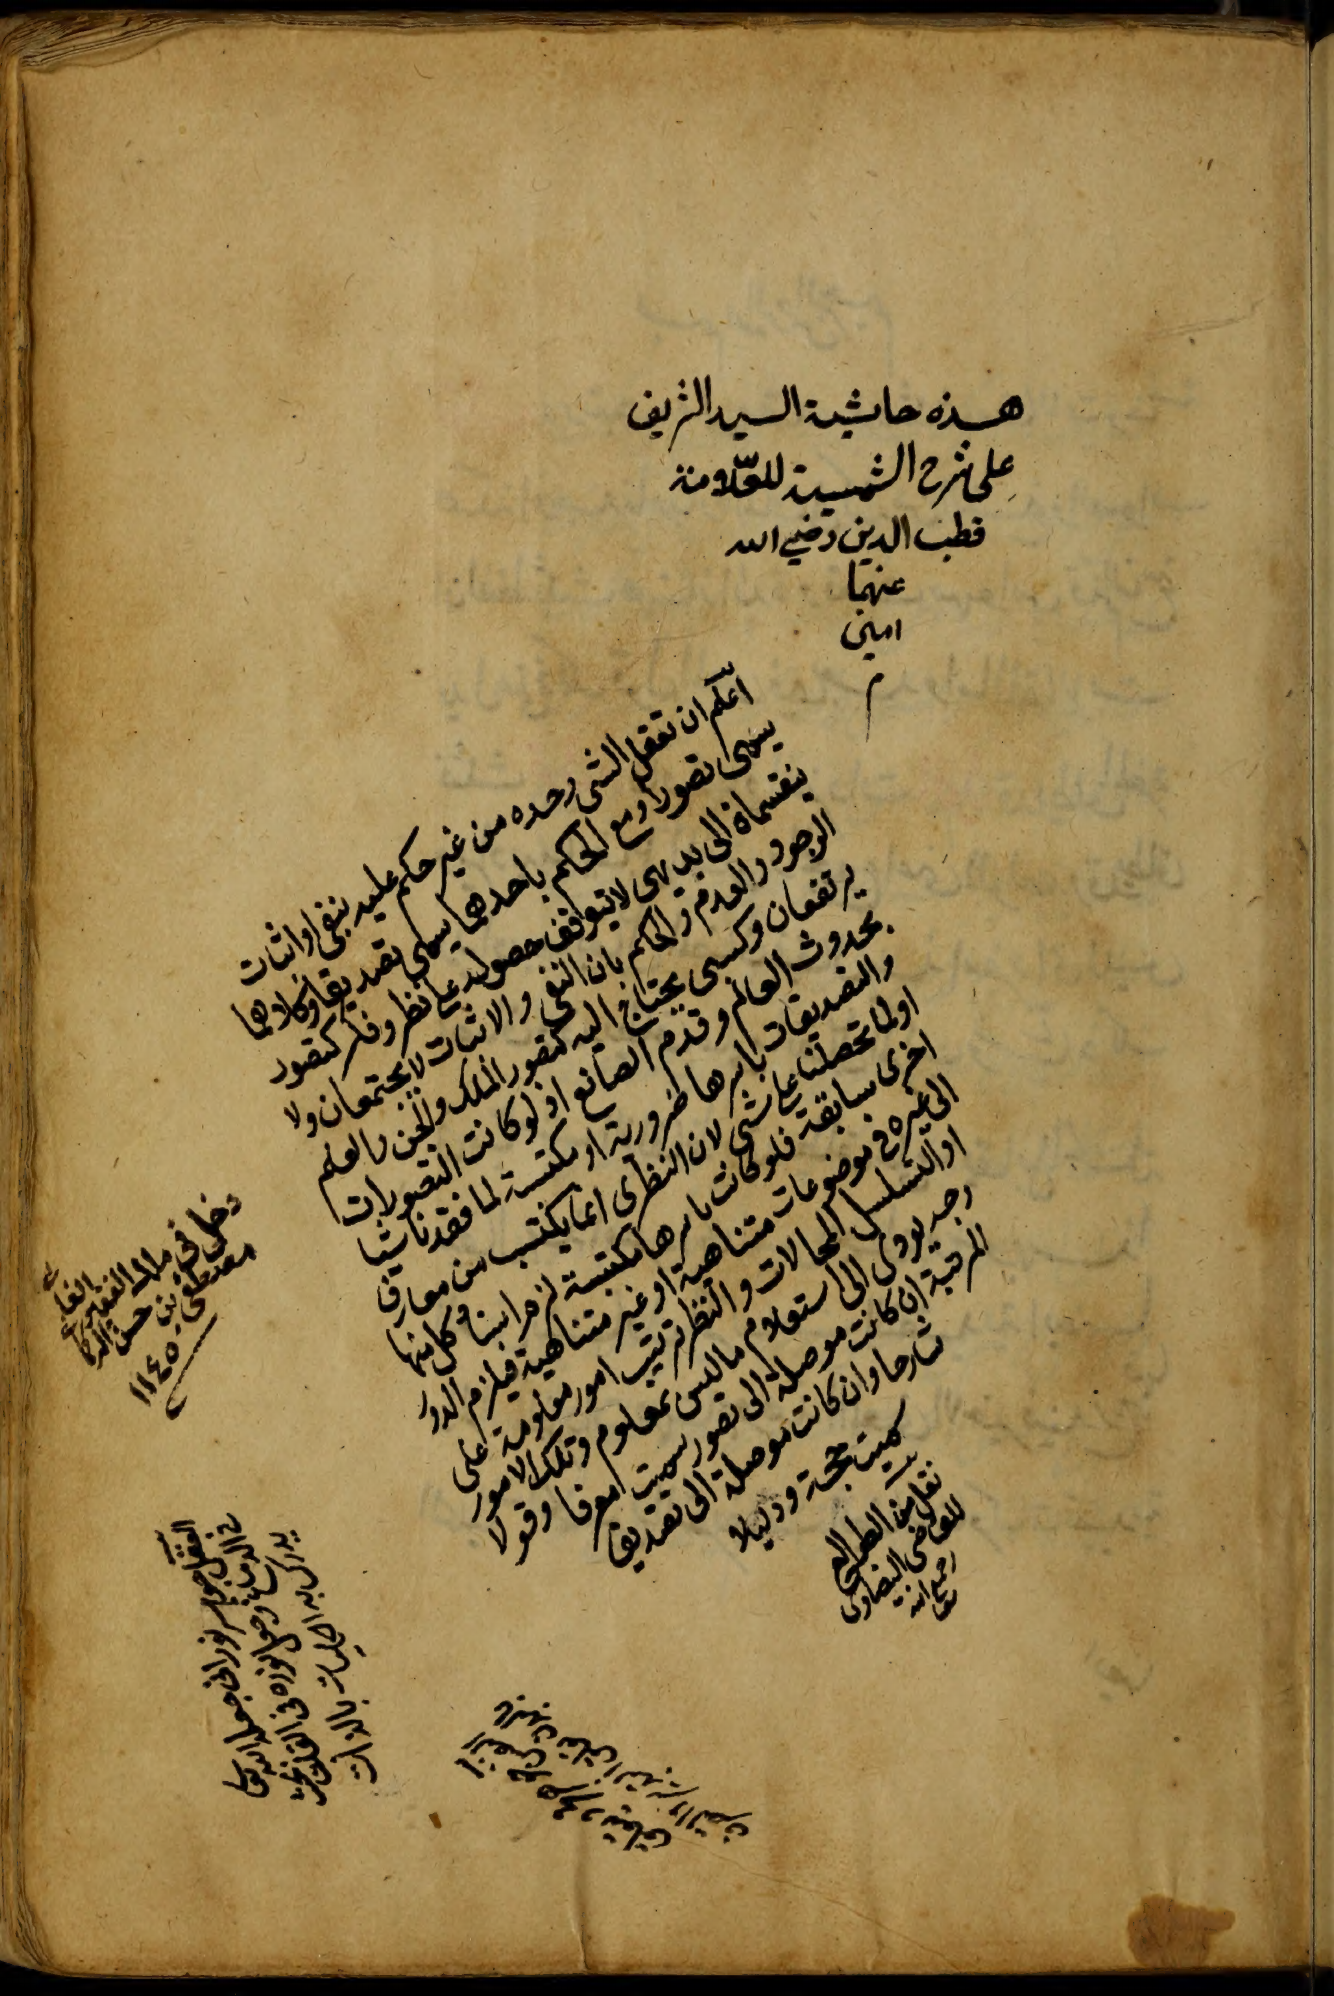 هذه حاشية السيد الشريف
على شرح الشمسية للعلامة
قطب الدين رضي الله
عنهما
امين
م
اعلم ان تعقل الشئ وحده من غير حكم عليه بنفى او اثبات
يسمى تصورا ومع الحكم باحدهما يسمى تصديقا وكلاهما
ينقسمان الى بديهى لا يتوقف حصوله على نظر وفكر كتصور
الوجود والعدم والحكم بان النفى والاثبات لا يجتمعان ولا
يرتفعان وكسبى يحتاج اليه كتصور الملك والجن والعلم
بحدوث العالم وقدم الصانع اذ لو كانت التصورات
والتصديقات باسرها ضرورية او مكتسبة لما فقدنا شيئا
اولما تحصلنا على شئ لان النظرى انما يكتسب من معارف
اخرى سابقة فلو كانت باسرها مكتسبة لزم استناد كل منها
الى غيره فى موضوعات متناهية او غير متناهية فيلزم الدور
او التسلسل المحالات والنظر ترتيب امور معلومة على
وجه يودى الى استعلام ما ليس بمعلوم وتلك الامور
المرتبة ان كانت موصلة الى تصور سميت معرفا وقولا
شارحا وان كانت موصلة الى تصديق
سميت حجة ودليلا
نقل من الطوالع
للقاضى البيضاوى
رحمه الله
تعا
دخل في ملك الفقير
مصطفى بن حسن
١١٤٥
العقل جوهر نورانى جعله الله تعا
فى الدماغ وجعل نوره فى القلب
يدرك به الغايبات بالوسائط